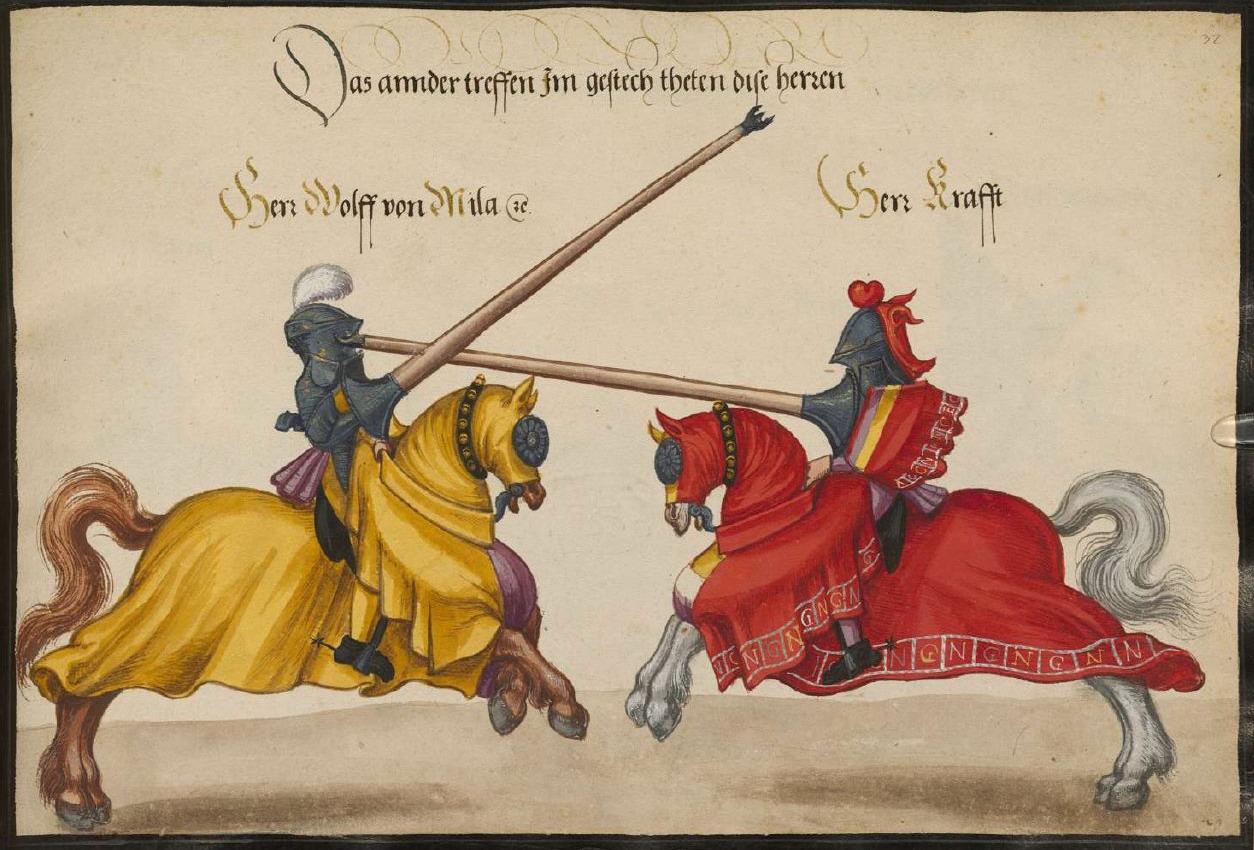 32
Das annder treffen Im gestech theten dise herren
Herr Wolff von Mila ꝛc.
Herr Krafft
GNGN
NGNGNGNN